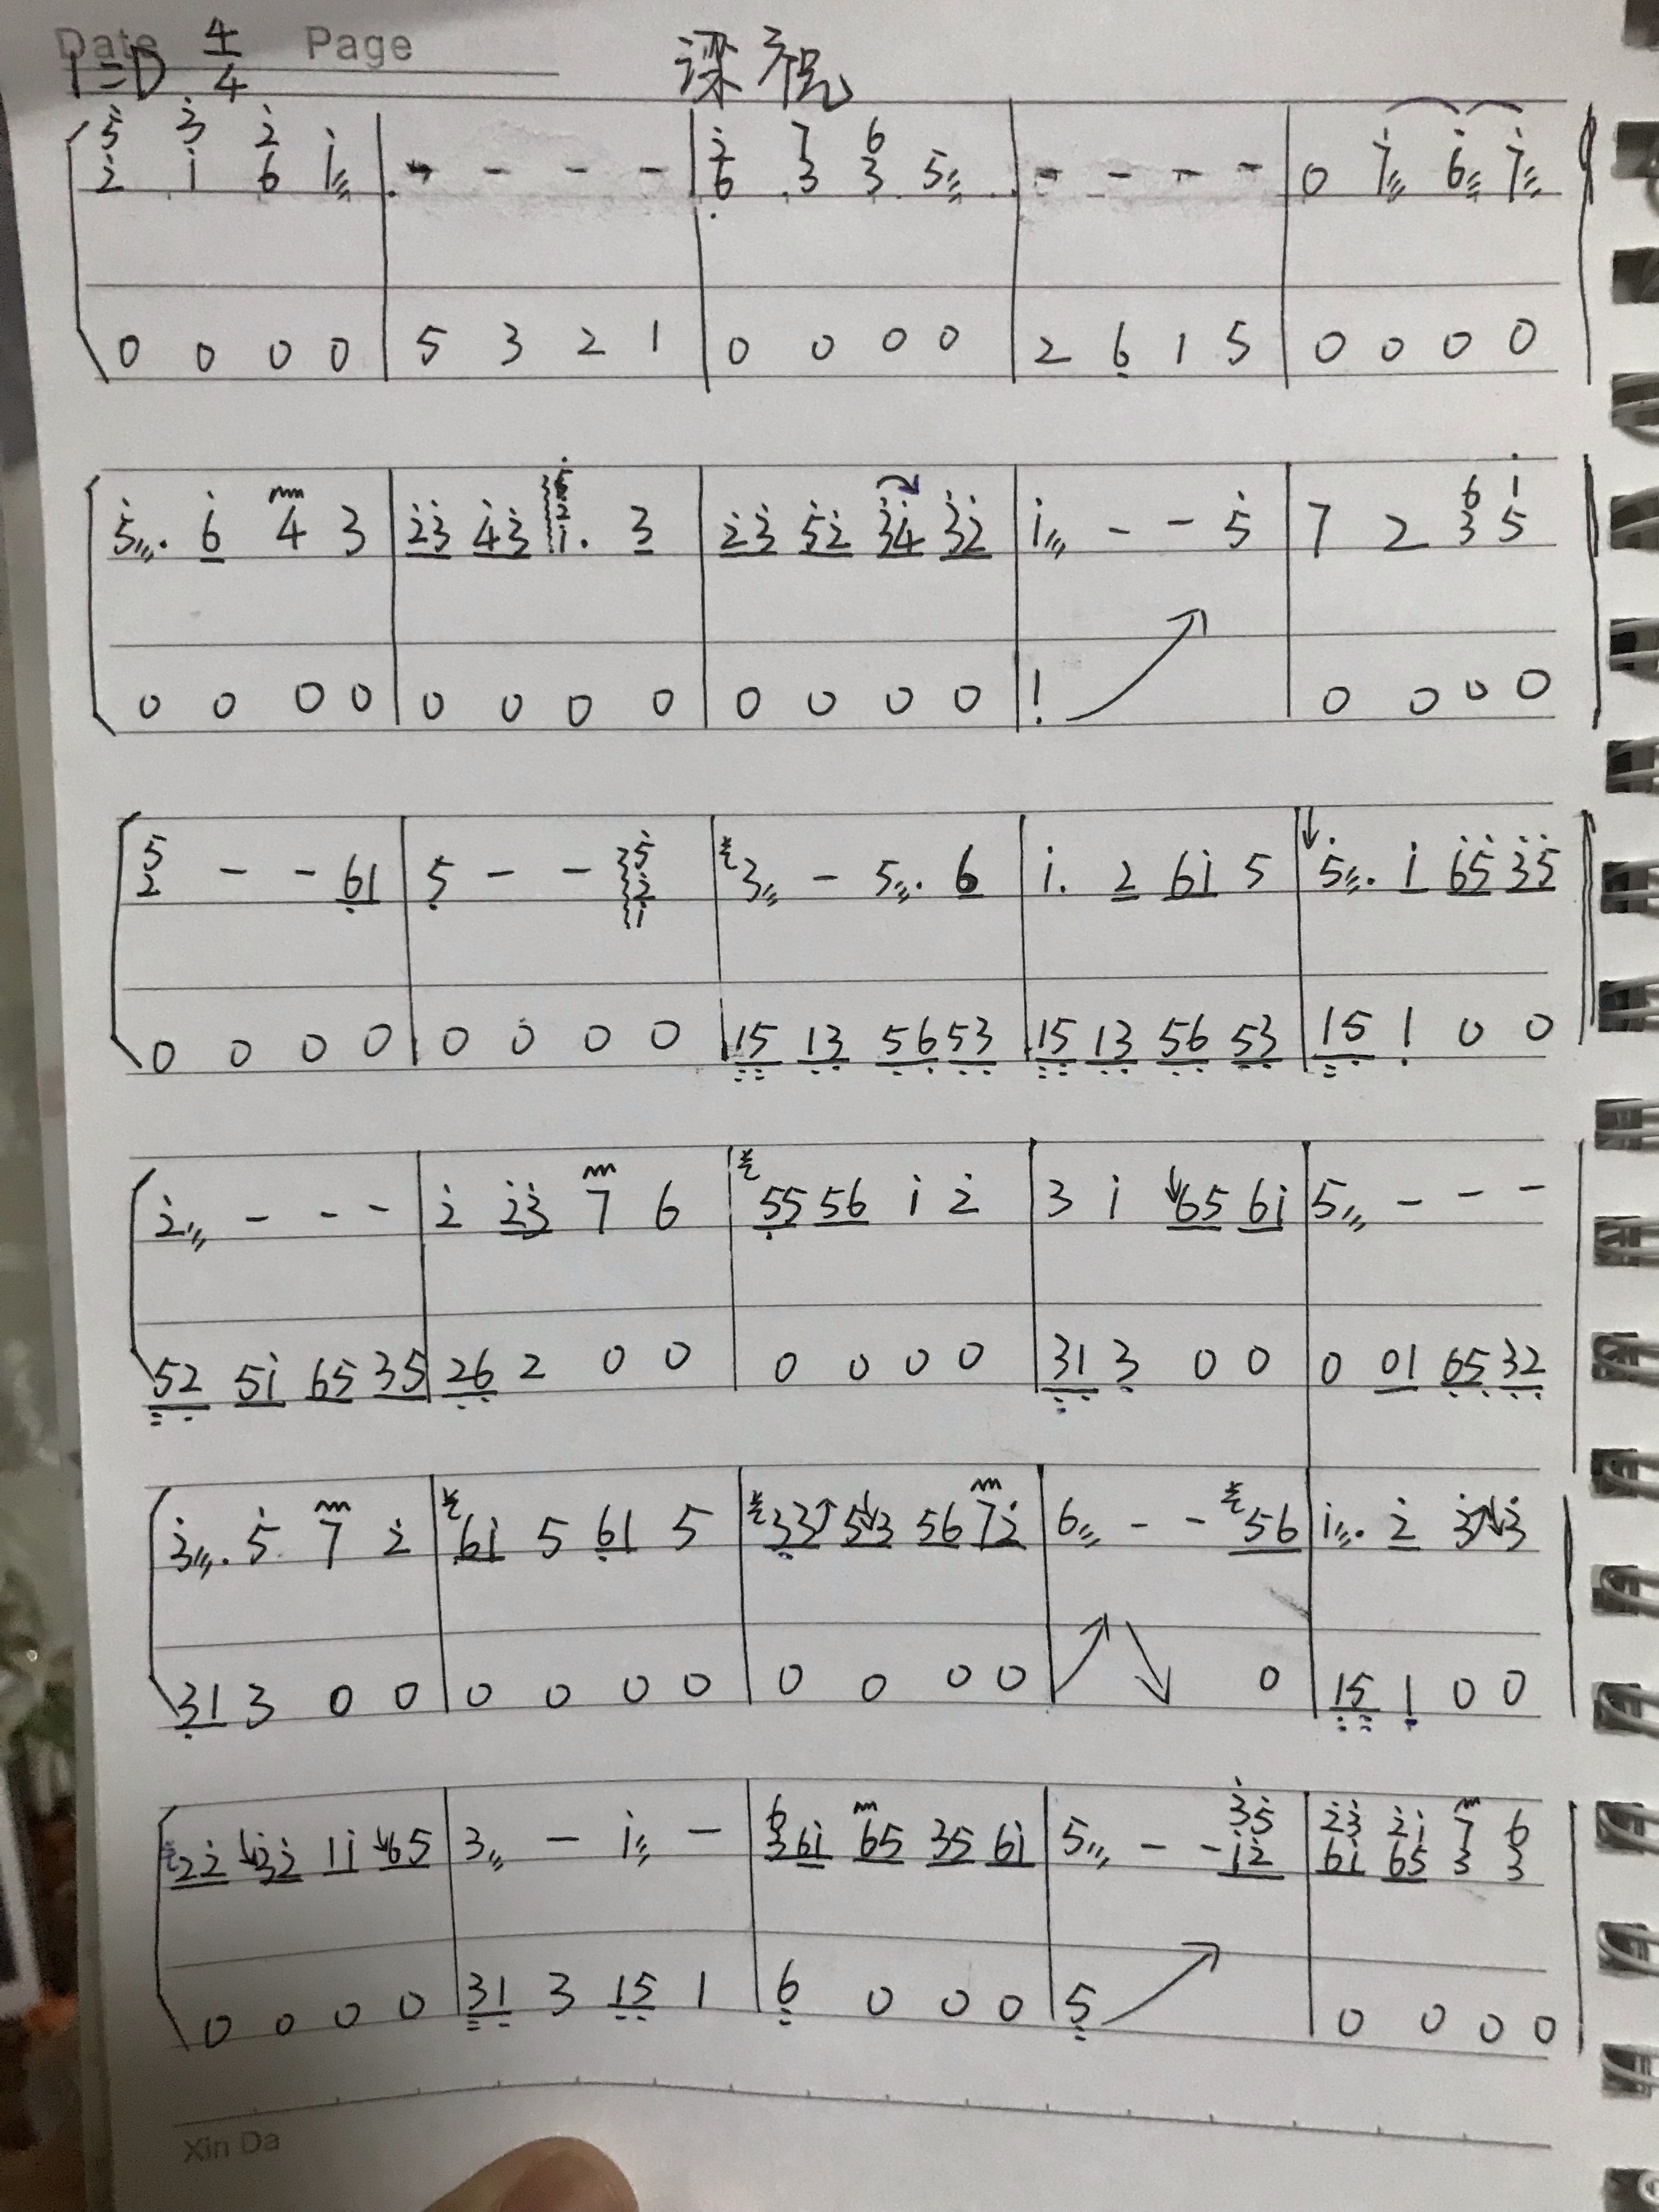 Date Page
1=D 4/4 深祝
5̇ 3̇ 2̇
2̇ i 6 i | - - - - | 2̇ 7 6
6 3 3 5 | - - - - | 0 7̇ 6̇ 7̇
0 0 0 0 | 5 3 2 1 | 0 0 0 0 | 2 6̣ 1 5 | 0 0 0 0
5̇. 6̇ 4 3 | 2̇3̇ 4̇3̇ i. 3 | 2̇3̇ 5̇2̇ 3̇4̇ 3̇2̇ | i - - 5̇ | 7 2 3 5
0 0 0 0 | 0 0 0 0 | 0 0 0 0 | 1̣ | 0 0 0 0
5
2 - - 6̣1 | 5̣ - - 5̇ 2̇ i | 3 - 5. 6 | i. 2̇ 6i 5 | 5̇. i 6̇5̇ 3̇5̇
0 0 0 0 | 0 0 0 0 | 15 13 56 53 | 15 13 56 53 | 15 1̣ 0 0
2̇ - - - | 2̇ 2̇3̇ 7 6 | 5̣5 56 i 2̇ | 3 i 65 6i | 5 - - -
52 5i 65 35 | 26 2 0 0 | 0 0 0 0 | 31 3 0 0 | 0 01 65 32
3̇. 5̇ 7 2̇ | 6i 5 6̣1 5 | 33 53 56 72̇ | 6 - - 56 | i. 2̇ 3̇ 3̇
31 3 0 0 | 0 0 0 0 | 0 0 0 0 | 0 | 15 1̣ 0 0
22̇ 3̇2̇ 1i 65 | 3 - i - | 3 6i 65 35 6i | 5 - - i2̇ | 6i 65 3 3
0 0 0 0 | 31 3 15 1 | 6̣ 0 0 0 | 5̣ | 0 0 0 0
Xin Da